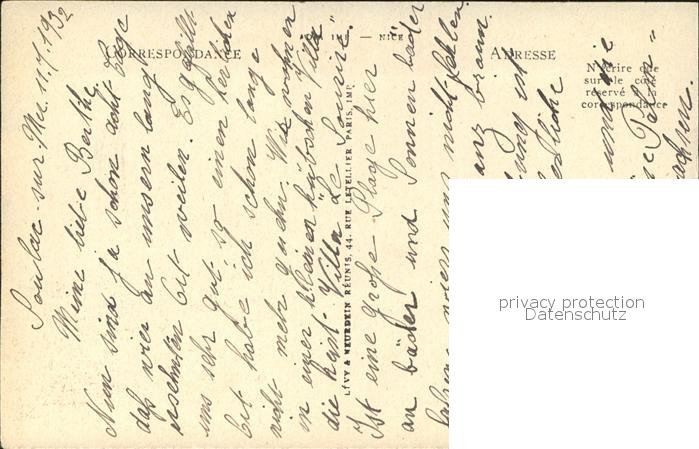 Soulac-sur-Mer 11.7.1932
Meine liebe Berthe.
Nun sind ja schon acht Tage
daß wir an unserm lang
ersehnten Ort weilen. Es gefällt
uns sehr gut; so einen herrlichen
Ort habe ich schon lange
nicht mehr gesehen. Wir wohnen
in einer kleinen hübschen Villa
die heisst Villa "Le Sourire".
Ist eine große Plage hier
an bäder und Sonnen bäder
wir uns nicht fehlen.
ganz braun.
ist
und die
CORRESPONDANCE
— NICE
ADRESSE
N'écrire que
sur le côté
réservé à la
correspondance
LÉVY & NEURDEIN RÉUNIS, 44, RUE LETELLIER PARIS, IMP.
privacy protection
Datenschutz